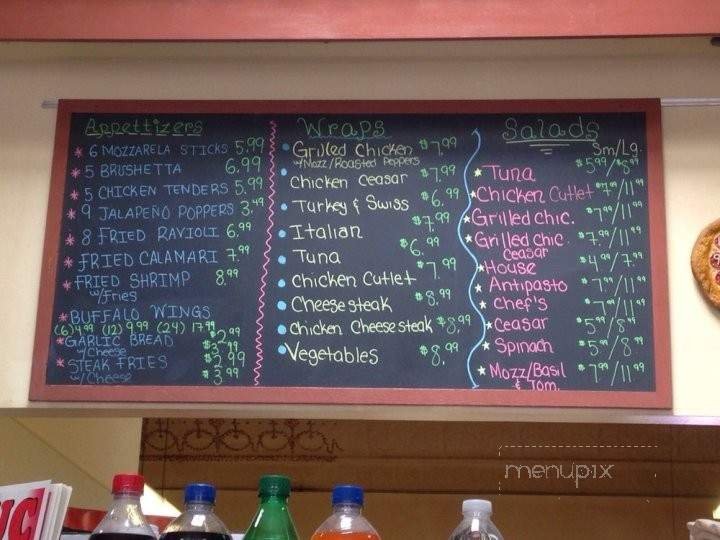 Appetizers
* 6 MOZZARELA STICKS 5.99
* 5 BRUSHETTA 6.99
* 5 CHICKEN TENDERS 5.99
* 9 JALAPEÑO POPPERS 3.49
* 8 FRIED RAVIOLI 6.99
* FRIED CALAMARI 7.99
* FRIED SHRIMP 8.99
w/fries
* BUFFALO WINGS
(6) 4.99 (12) 9.99 (24) 17.99
* GARLIC BREAD $2.99
w/Cheese $3.79
* STEAK FRIES $2.99
w/Cheese $3.99
Wraps
Grilled Chicken $7.99
w/Mozz/Roasted Peppers
Chicken Ceasar $7.99
Turkey & Swiss $6.99
Italian $7.99
Tuna $6.99
Chicken Cutlet $7.99
Cheese steak $8.99
Chicken Cheese steak $8.99
Vegetables $8.99
Salads
Sm/Lg.
Tuna $5.99/$8.99
Chicken Cutlet $7.99/11.99
Grilled chic. $7.99/11.99
Grilled chic. $7.99/11.99
ceasar
House $4.99/7.99
Antipasto $7.99/11.99
Chef's $7.99/11.99
Ceasar $5.99/8.99
Spinach $5.99/8.99
Mozz/Basil $7.99/11.99
& Tom.
menupix